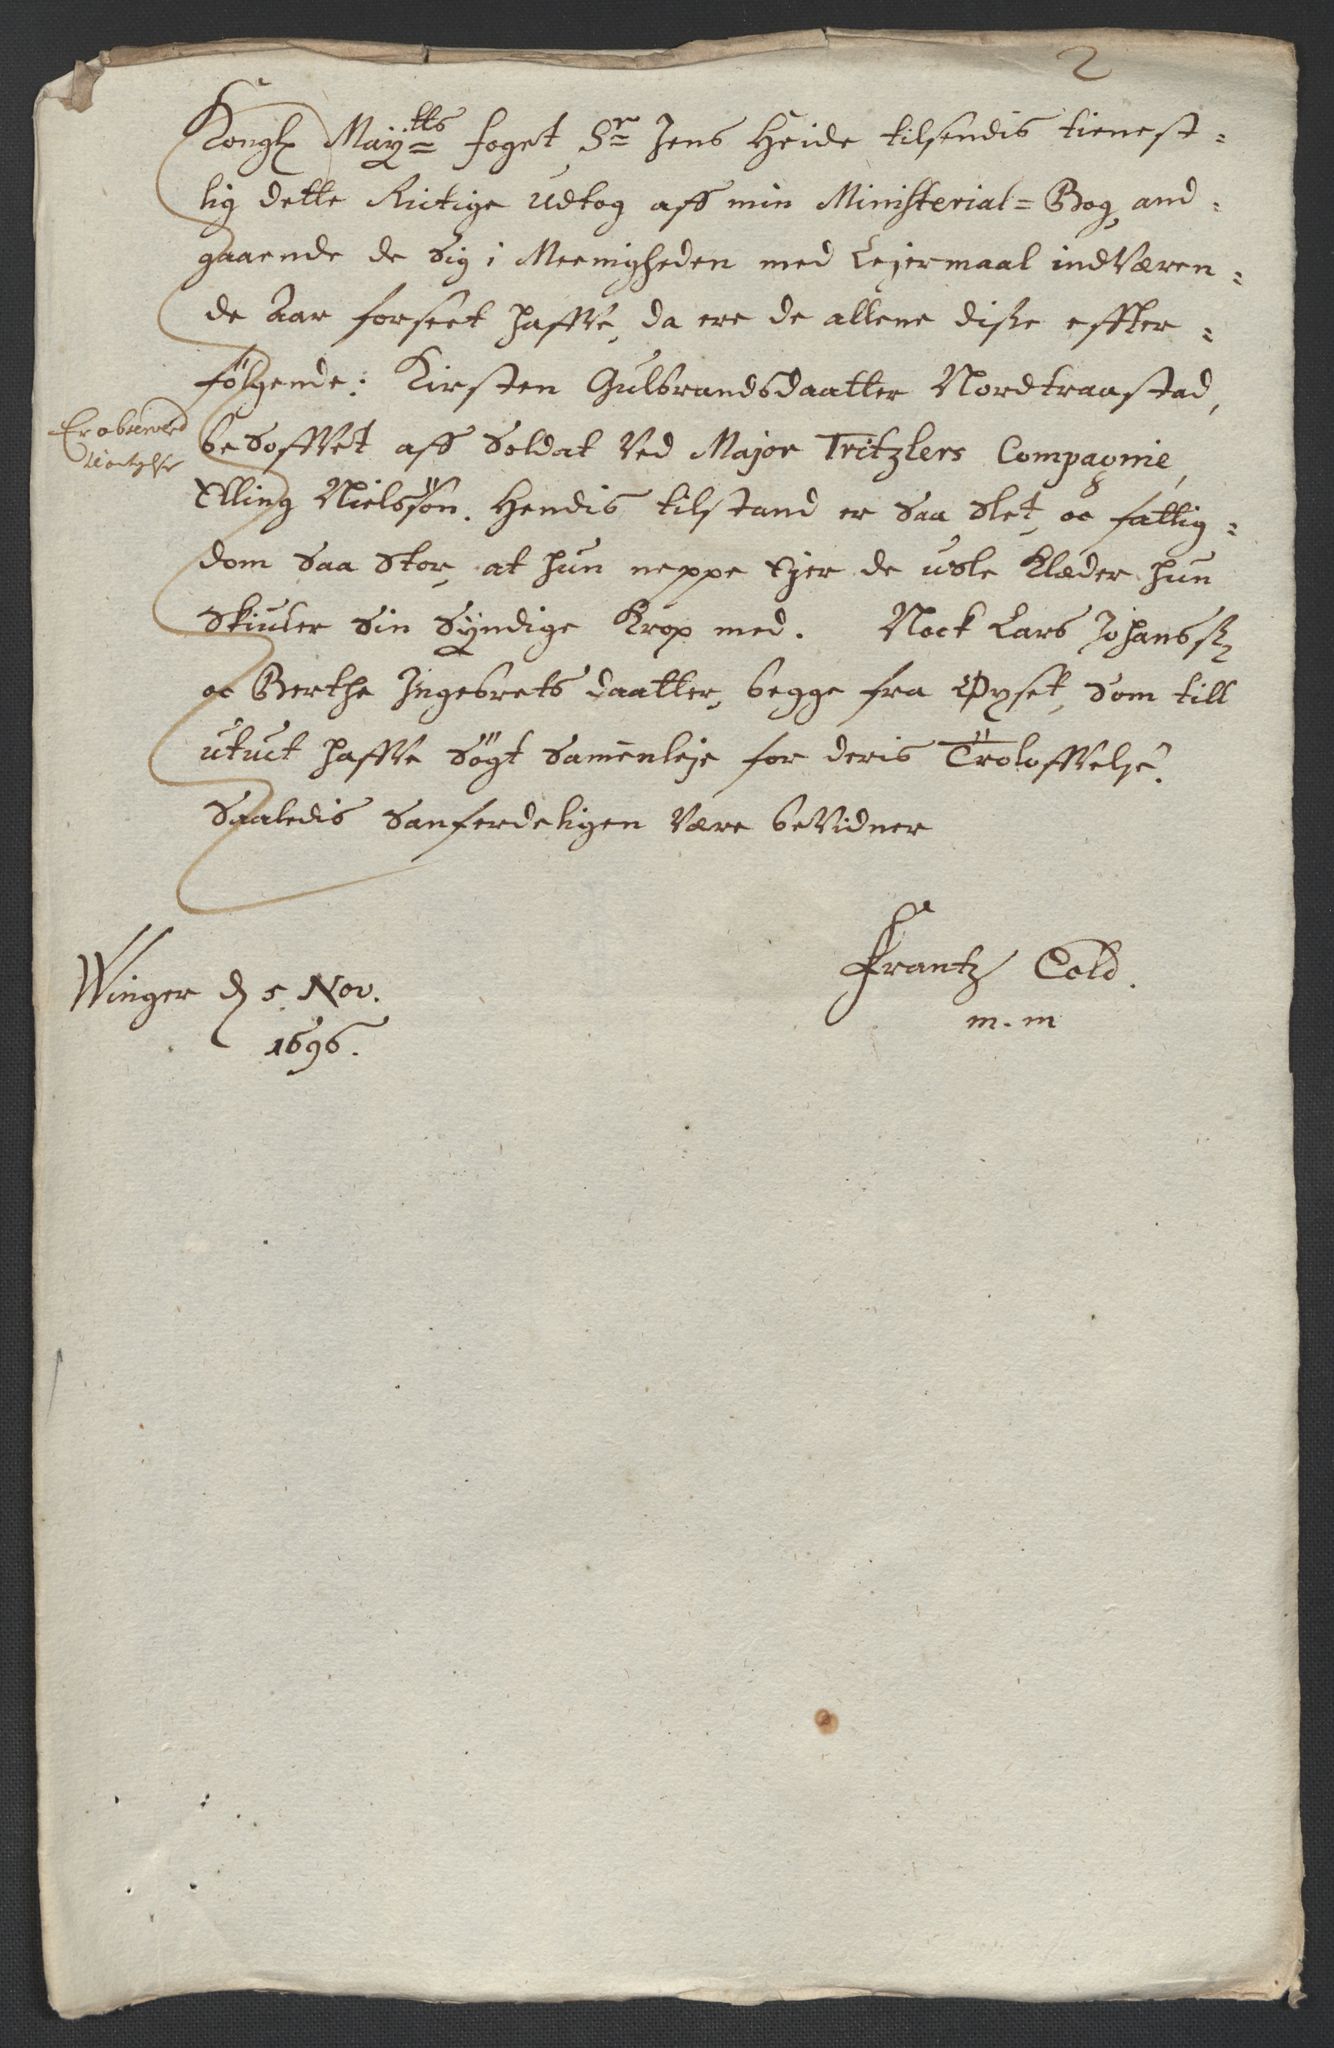 2
Kongl Maytts foget Sr Jens Heide tilsendis tienest=
lig dette Rictige Udtog aff min Ministerial=Bog and=
gaaende de sig i Meenigheden med Lejermaal indVæren=
de Aar forseet haffve, da ere de allene diße effter=
følgende: Kirsten Gulbrandsdaatter Nordtraastad,
besoffvet aff Soldat Ved Major Tritzlers Compagnie,
Elling Nielssøn. Hendis tilstand er saa slet, oc fattig=
dom saa stor, at hun neppe Ejer de usle Klæder hun
skiuler sin syndige Krop med. Nock Lars Johanss
oc Berthe Ingebrets daatter, begge fra Øyset, som till
utuct haffve søgt samenleje for deris Troloffvelse.
Saaledis sanferdeligen være beVidner
Winger d 5 Nov.
1696.
Frantz Cold.
m.m